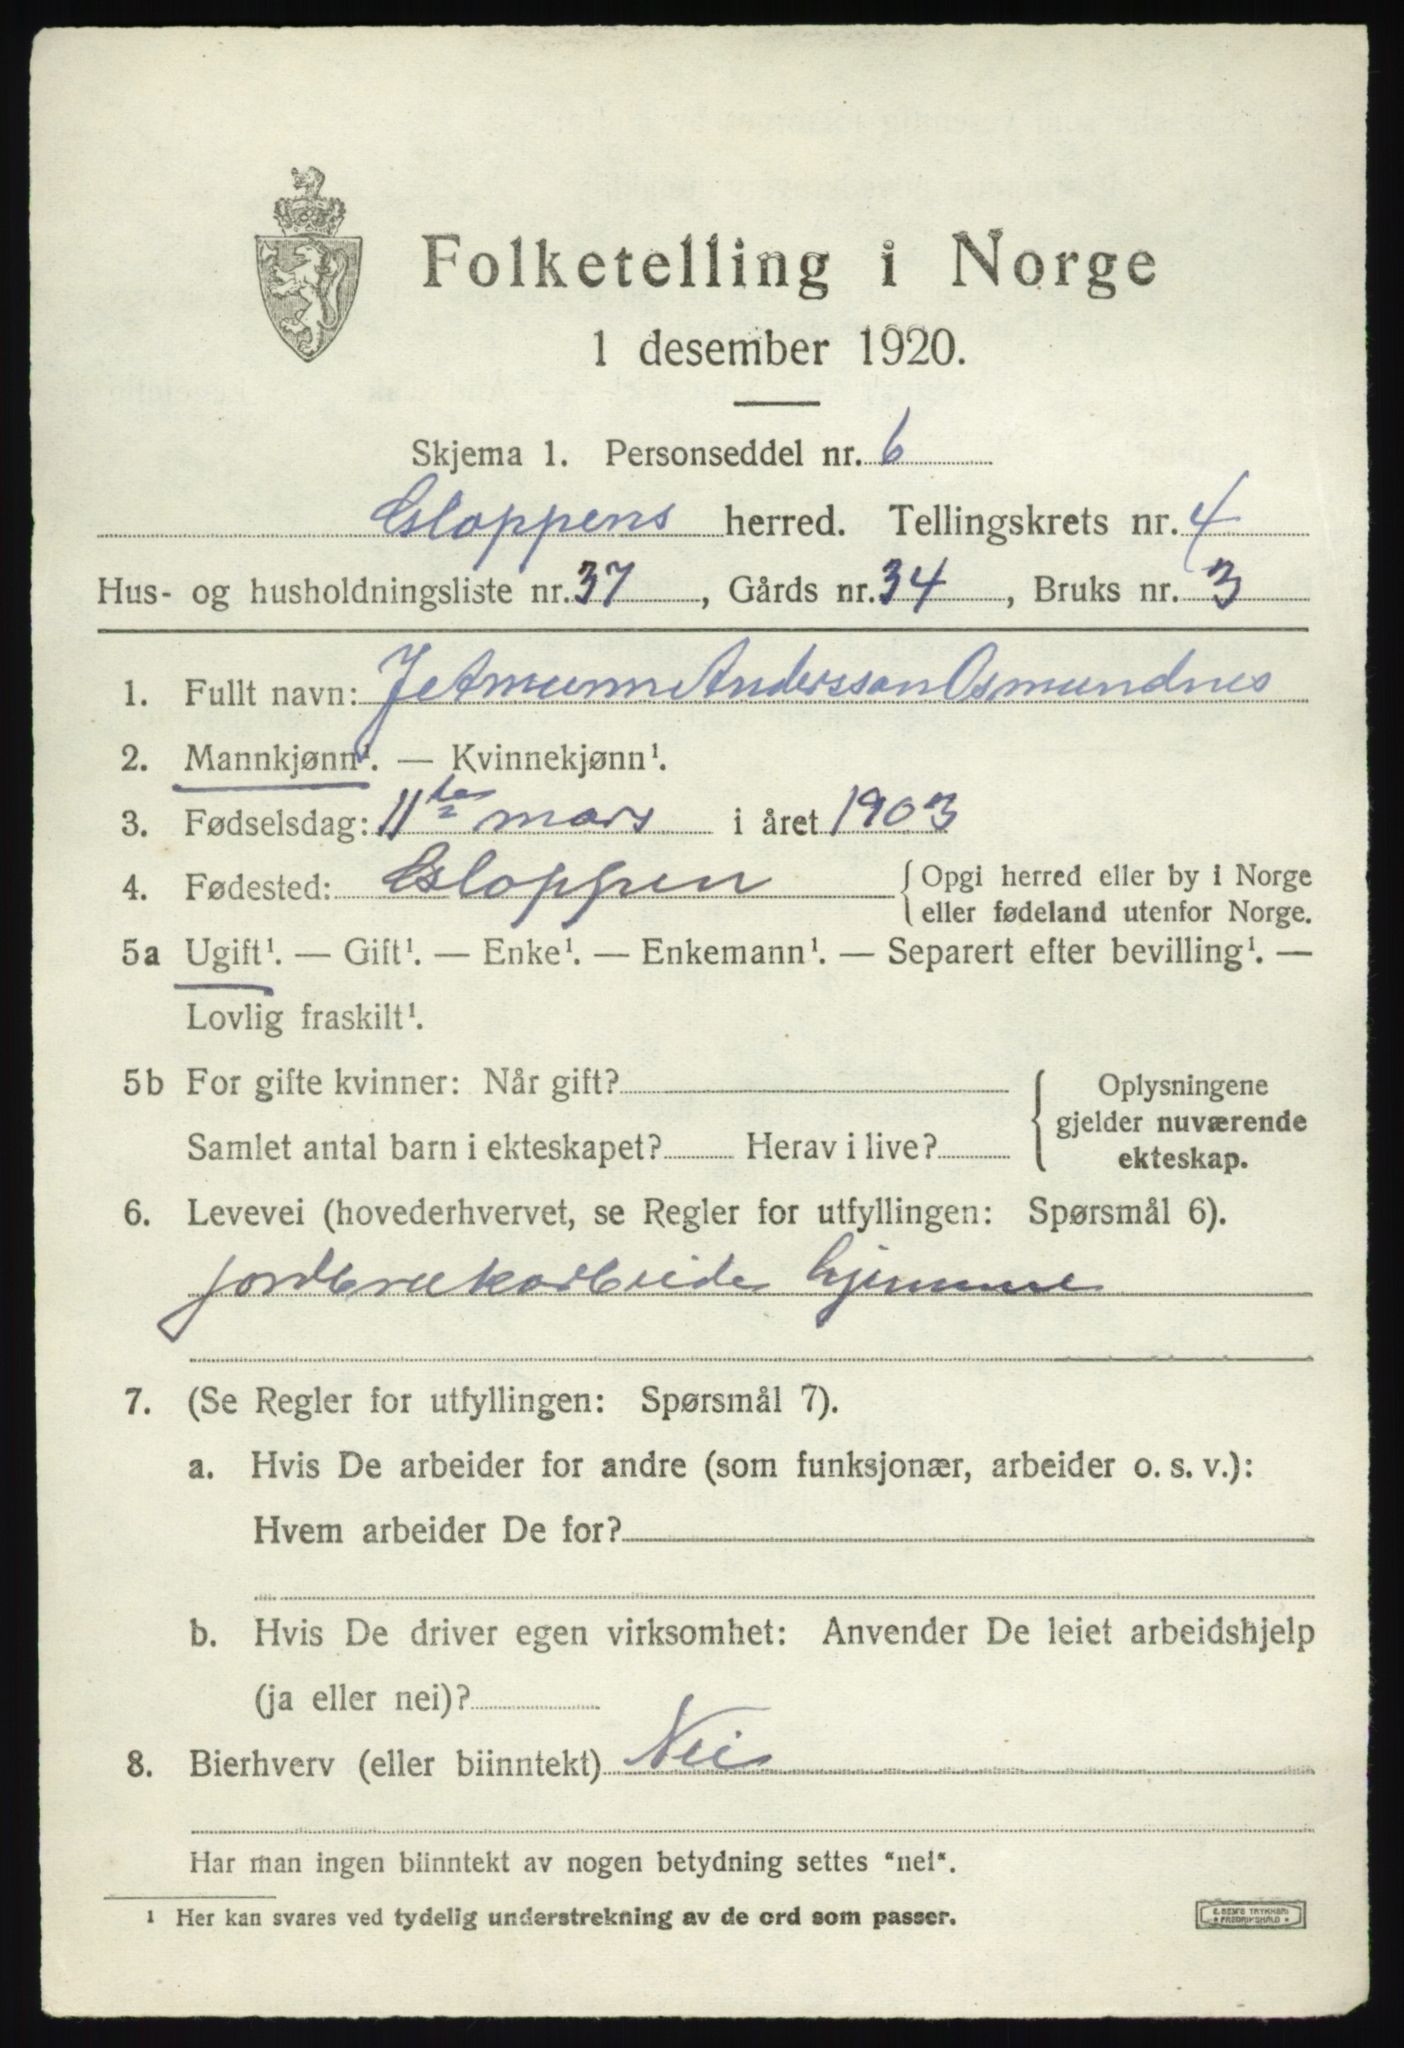 Folketelling i Norge
1 desember 1920.
Skjema 1. Personseddel nr. 6
Gloppens herred. Tellingskrets nr. 4
Hus- og husholdningsliste nr. 37, Gårds nr. 34, Bruks nr. 3
1. Fullt navn: Andersson Osmundnes
2. Mannkjønn¹. — Kvinnekjønn¹.
3. Fødselsdag: 11te mars i året 1903
4. Fødested: Gloppen { Opgi herred eller by i Norge
eller fødeland utenfor Norge.
5a Ugift¹. — Gift¹. — Enke¹. — Enkemann¹. — Separert efter bevilling¹. —
Lovlig fraskilt¹.
5b For gifte kvinner: Når gift? { Oplysningene
gjelder nuværende
ekteskap.
Samlet antal barn i ekteskapet? Herav i live?
6. Levevei (hovederhvervet, se Regler for utfyllingen: Spørsmål 6).
jordbrukarbeide hjemme
7. (Se Regler for utfyllingen: Spørsmål 7).
a. Hvis De arbeider for andre (som funksjonær, arbeider o. s. v.):
Hvem arbeider De for?
b. Hvis De driver egen virksomhet: Anvender De leiet arbeidshjelp
(ja eller nei)?
8. Bierhverv (eller biinntekt) Nei
Har man ingen biinntekt av nogen betydning settes “nei“.
¹ Her kan svares ved tydelig understrekning av de ord som passer.
E. SEM'S TRYKKERI
* FREDRIKSHALD *